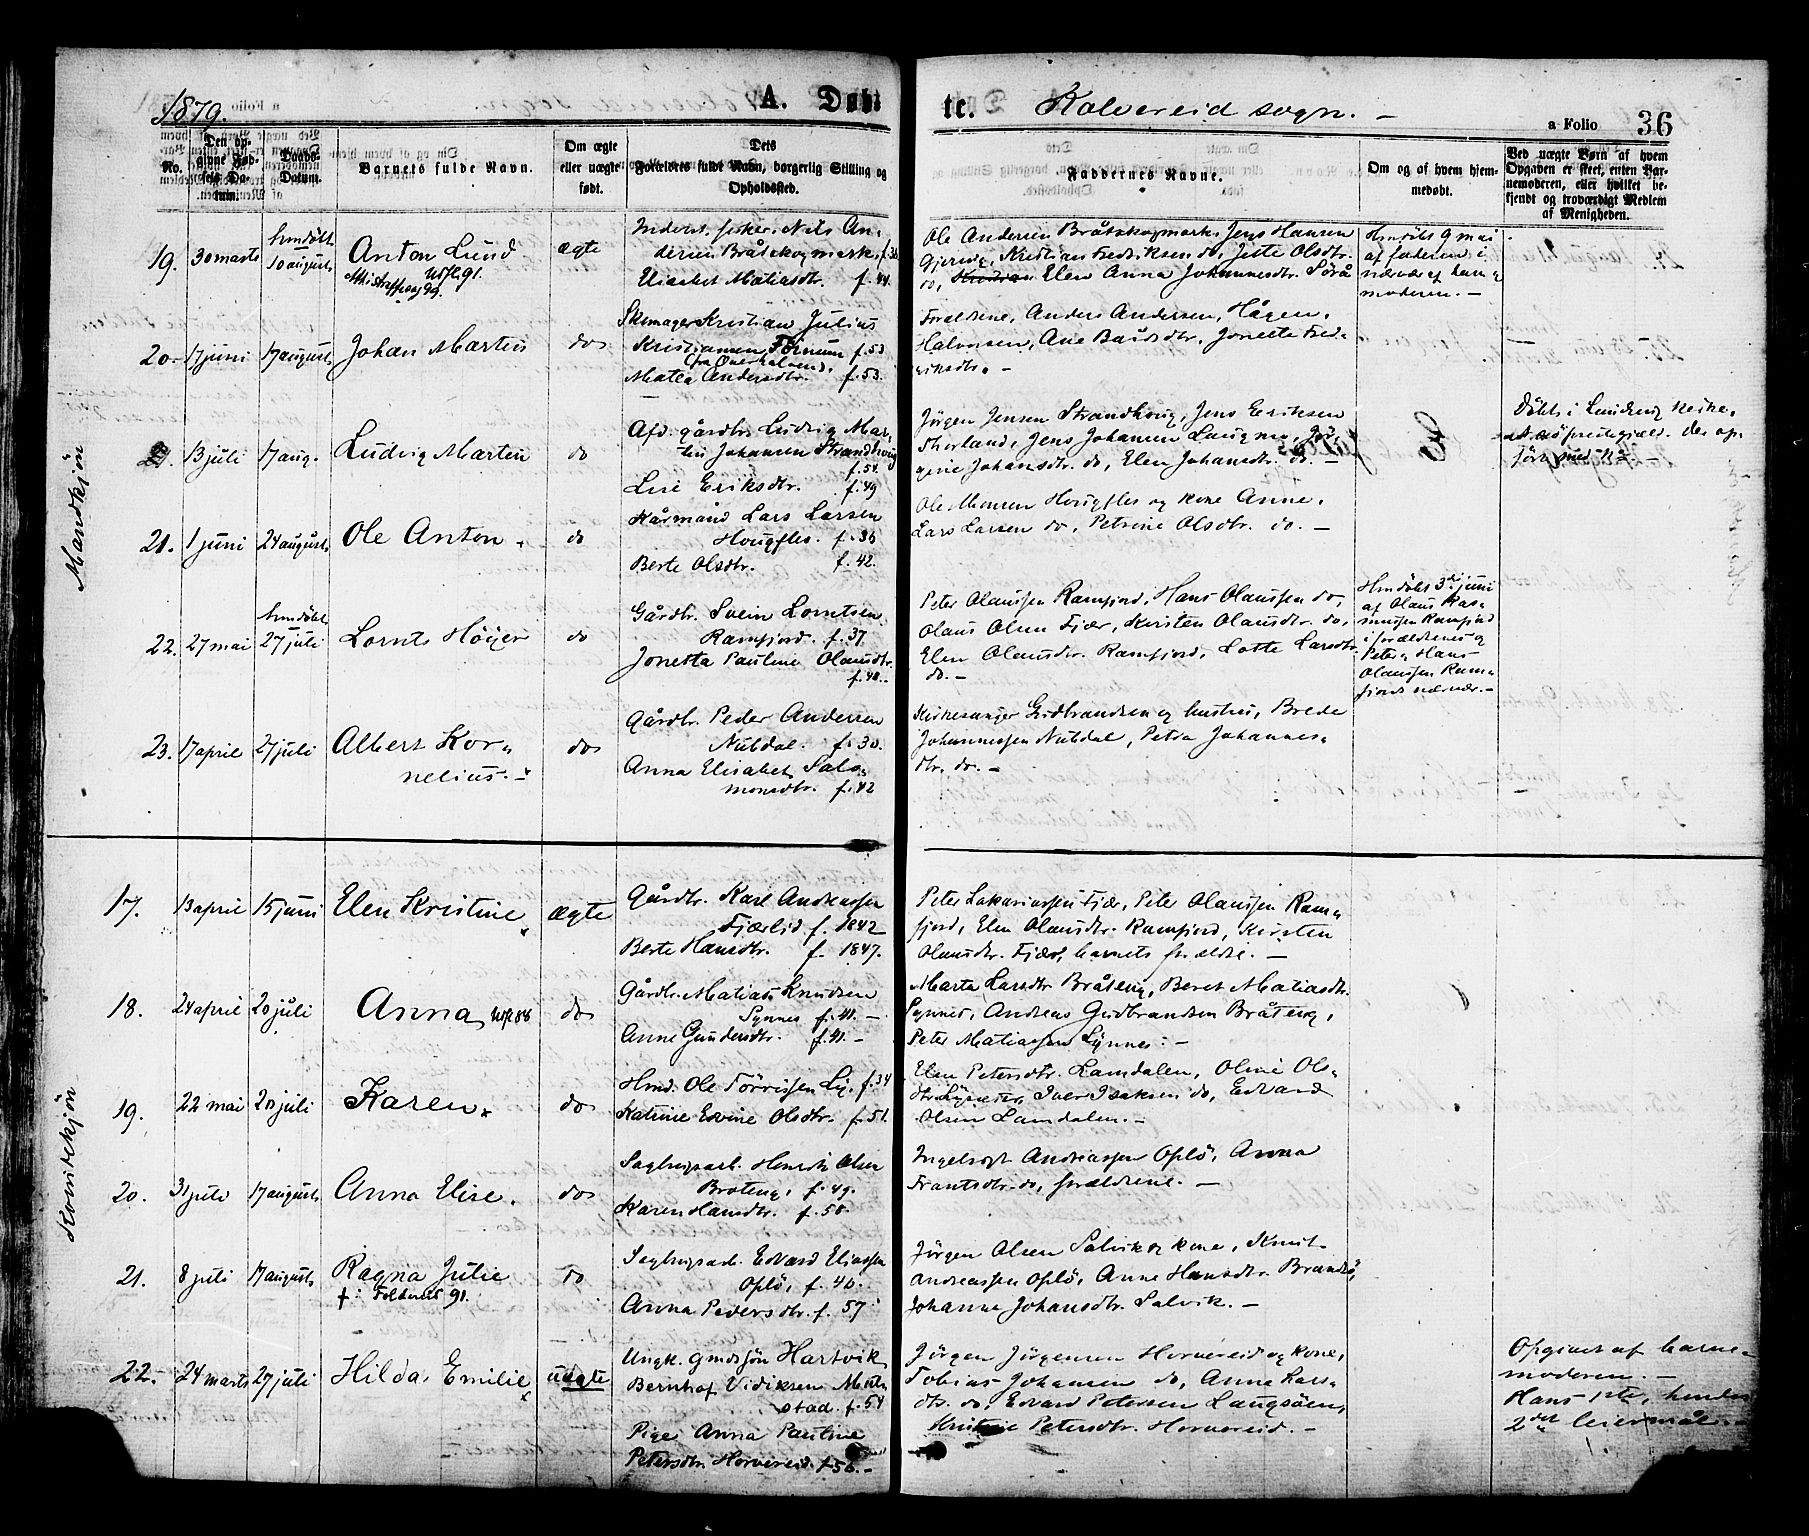 1879.
A. Døbte.
Kolvereid sogn. -
a Folio 36
No.
Den opgivne Fødsels Datum.
Daabs-Datum.
Barnets fulde Navn.
Om ægte eller uægte født.
Dets Forældres fulde Navn, borgerlig Stilling og Opholdssted.
Faddernes Navne.
Om og af hvem hjemmedøbt.
Ved uægte Børn af hvem Opgaven er skeet, enten Barnemoderen, eller hvilket bekjendt og troværdigt Medlem af Menigheden.
Mandkjøn
19. 30 marts 10 august Anton Lund ægte
Inderst, fisker Nils Andersen Bråtskogmark, f. 36
Elisabet Matiasdtr. f. 44.
Ole Andersen Bråtskogmark, Jens Hansen
Gjervig, Kristian Fredriksen do, Jette Olsdtr.
do, Elen Anna Johannesdtr. Sørå
Hmdøbt 9 mai
af faderen i
nærvær af barnemoderen. -
20. 17 juni 17 august Johan Martin do
Skomager Kristian Julius
Kristiansen Fornum f. 53
(fra Overhalvend.)
Matea Andersdtr. f. 53.
Forældrene, Anders Andersen, Hågen
Halvorsen, Ane Bårdsdtr, Jonette Fredriksdtr. -
13 juli 17 aug. Ludvig Martin do
Afd. gårdbr. Ludvig Martin Johansen Strandhoug
f. 54.
Lise Eriksdtr. f. 49
Jörgen Jensen Strandhoug, Jens Eriksen
Johansdtr. do, Elen Johansdtr. do. -
21. 1 juni 24 august Ole Anton. do
Kårmand Lars Larsen
Hougfles. f. 36
Berte Olsdtr. f. 42.
Ole Monsen Hougfles og kone Anne,
Lars Larsen do, Petrine Olsdtr. do. -
22. 27 mai hmdøbt 27 juli Lornts Höyer do
Gårdbr. Svein Lorntsen
Ramfjord. f. 37.
Jonetta Pauline Olausdtr.
f. 48. -
Peter Olaussen Ramfjord, Hans Olaussen do,
Olaus Olsen Fjær, Kirsten Olausdtr. do,
Elen Olausdtr. Ramfjord, Lotte Larsdtr.
do. -
Hmdøbt 3de juni
af Olaus Rasmussen Ramfjord
i forældrenes og
Peter, Hans
Olaussen Ramfjords nærvær. -
23. 17 april 27 juli Albert Kornelius. - do
Gårdbr. Peder Andersen
Nubdal. f. 30.
Anna Elisabet Salomonsdtr. f. 42
Kirkesanger Gudbrandsen og hustru, Brede
Johannessen Nubdal, Petra Johannesdtr. do. -
Kvindekjøn
17. 13 april 15 juni Elen Kristine ægte
Gårdbr. Karl Andreassen
Fjærlid f. 1842
Berte Hansdtr. f. 1847.
Peter Sakariassen Fjær, Peter Olaussen Ramfjord, Elen Olausdtr. Ramfjord, Kirsten
Olausdtr. Fjær, barnets forældre. -
18. 24 april 20 juli Anna do
Gårdbr. Matias Knudsen
Synnes f. 41. -
Anne Gundersdtr. f. 41. -
Marta Larsdtr. Bråteng, Beret Matiasdtr.
Synnes, Andreas Gudbrandsen Bråteng,
Peter Matiassen Synnes. -
19. 22 mai 20 juli Karen. do
Hmd. Ole Törrissen Ly, f. 34
Katrine Edvine Olsdtr. f. 51.
Elen Petersdtr. Lamdalen, Oline Olsdtr. Iver Isaksen do, Edvard
Olsen Lamdalen. -
20. 3 juli 17 august Anna Elise. do
Sagbrugsarb. Henrik Olsen
Broteng, f. 49.
Karen Hansdtr. f. 58.
Ingebrigt Andreassen Oplö, Anna
Frantsdtr. do, forældrene. -
21. 8 juli 17 august Ragna Julie do
† i Foldereid 91.
Sagbrugsarb. Edvard Eliassen
Oplö, f. 46.
Anna Pedersdtr. f. 57
Jörgen Olsen Salvik og kone, Knut
Andreassen Oplö, Anne Hansdtr. Brandsö,
Johanna Johansdtr. Salvik. -
22. 24 marts 27 juli Hilda Emilie uægte
Ungk. grndsjön Hartvik
Bernhof Vidiksen
f. 54
Pige Anna Pauline
Petersdtr. Horvereid. f. 56. -
Jörgen Jörgensen Horvereid og kone,
Tobias Johansen do, Anna Larsdtr. do, Edvard Petersen Laugsöen,
Petersdtr. Horvereid. -
Opgivet af barnemoderen. -
Hans 1ste, hendes
2det leiermål. -